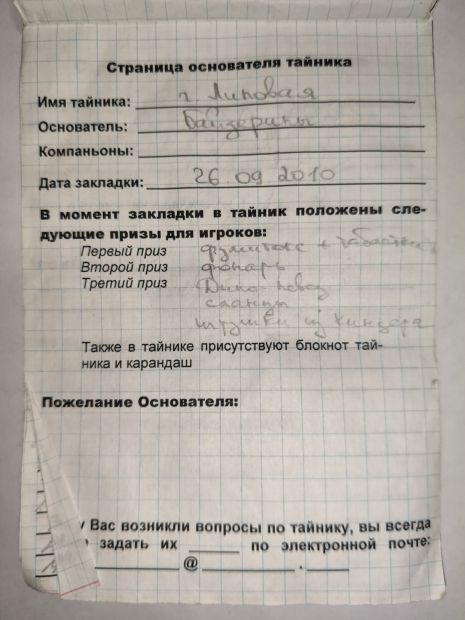 Страница основателя тайника
Имя тайника: г. Липовая
Основатель: Байзерины
Компаньоны:
Дата закладки: 26 09 2010
В момент закладки в тайник положены сле-
дующие призы для игроков:
Первый приз фумитокс +
Второй приз фонарь
Третий приз
сланцы
игрушки из киндера
Также в тайнике присутствуют блокнот тай-
ника и карандаш
Пожелание Основателя:
у Вас возникли вопросы по тайнику, вы всегда
задать их ______ по электронной почте:
@ .